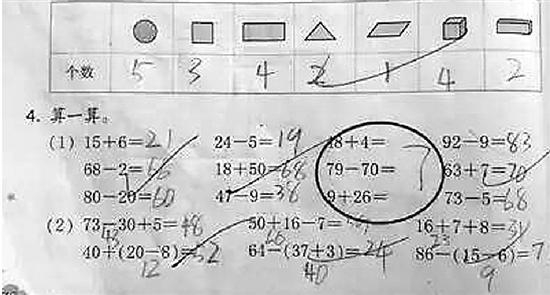 个数 5 3 4 2 1 4 2
4. 算一算。
(1) 15+6=21 24-5=19 48+4= 92-9=83
68-2=66 18+50=68 79-70= 7 63+7=70
80-20=60 47-9=38 9+26= 73-5=68
(2) 73-30+5=48 50+16-7= 16+7+8=31
43 66 23
40+(20-8)=52 64-(37+3)=24 86-(15-6)=7
12 40 9